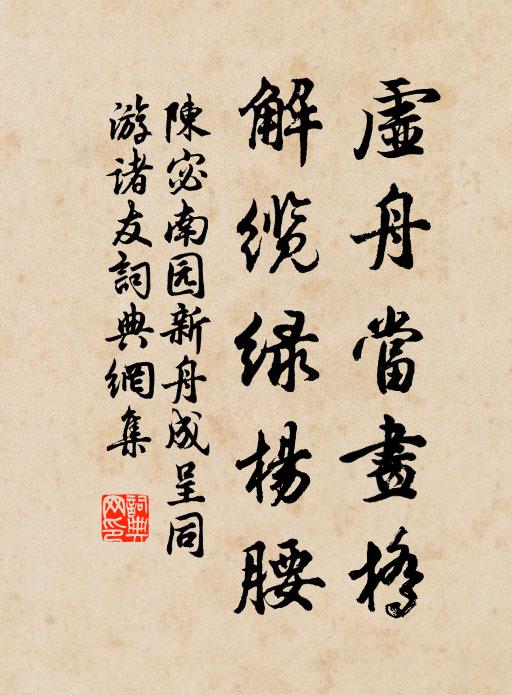 虛舟當畫橋
解缆绿楊腰
陳宓南园新舟成呈同
游诸友詞典網集
詞典網印